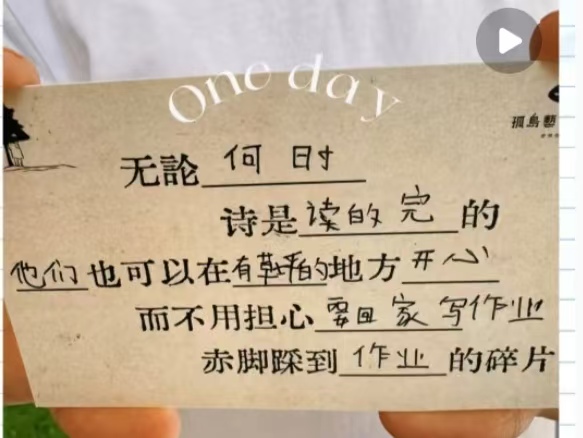 One day
孤島藝
无論何时
诗是读的完的
他们也可以在有鞋的地方开心
而不用担心要回家写作业
赤脚踩到作业的碎片